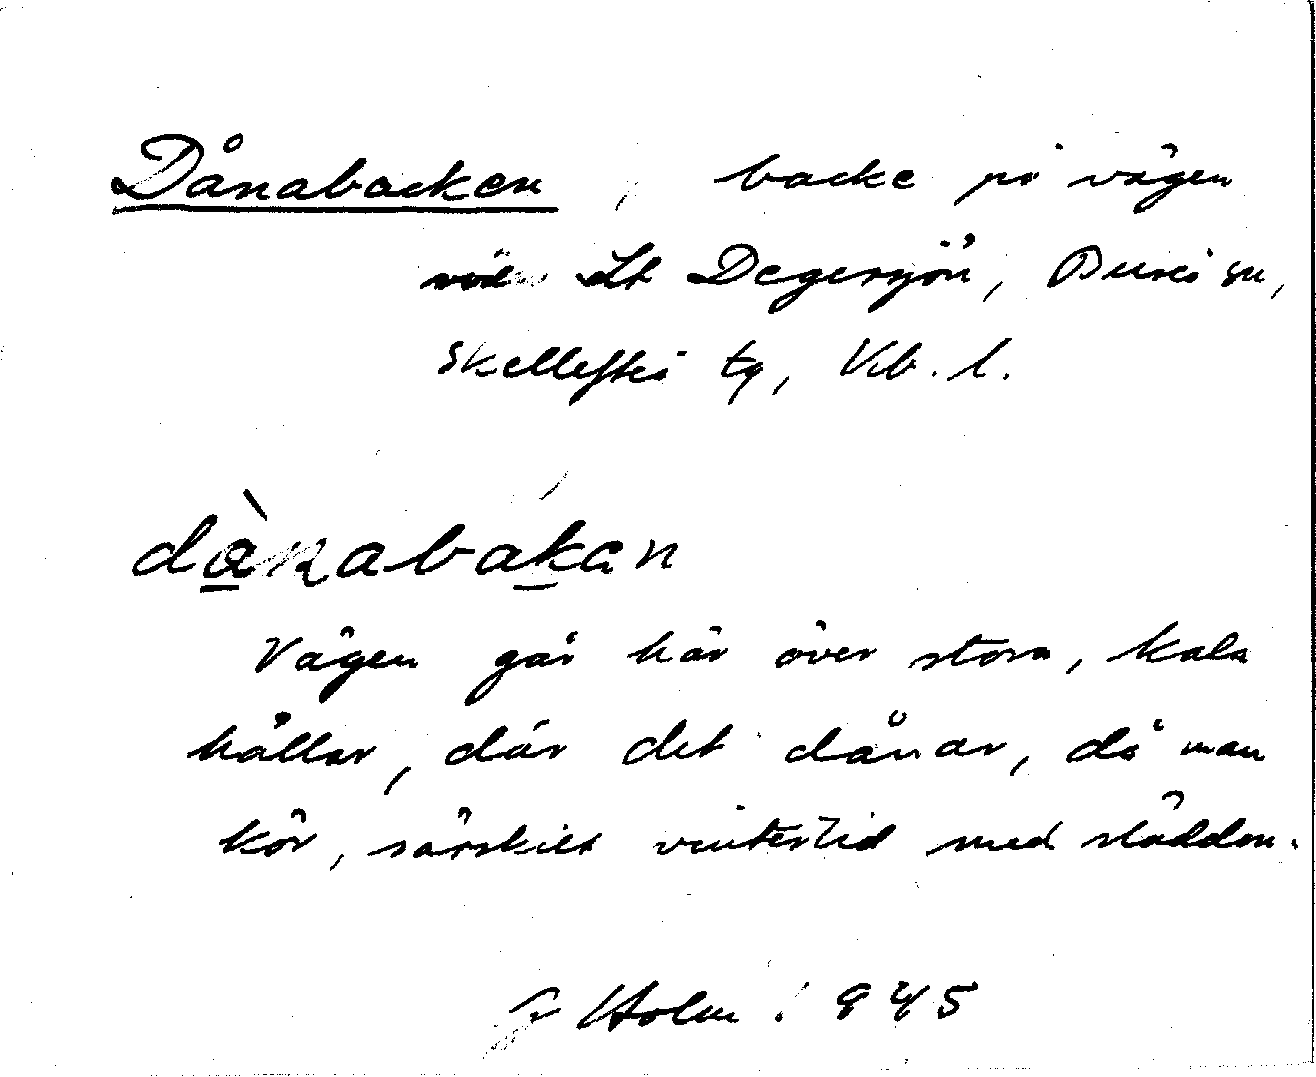 Dånabacken, backe på vägen
söder St Degersjön, Bureå sn,
Skellefteå tg, Vb. l.
dànabakan
Vägen går här över stora, kala
hällar, där det dånar, då man
kör, särskilt vintertid med slädden.
G Holm 1945